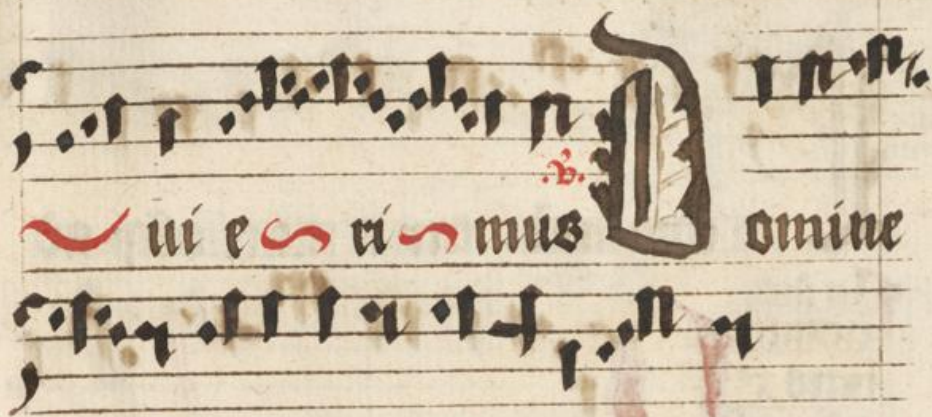 ui e ri mus .V. Domine